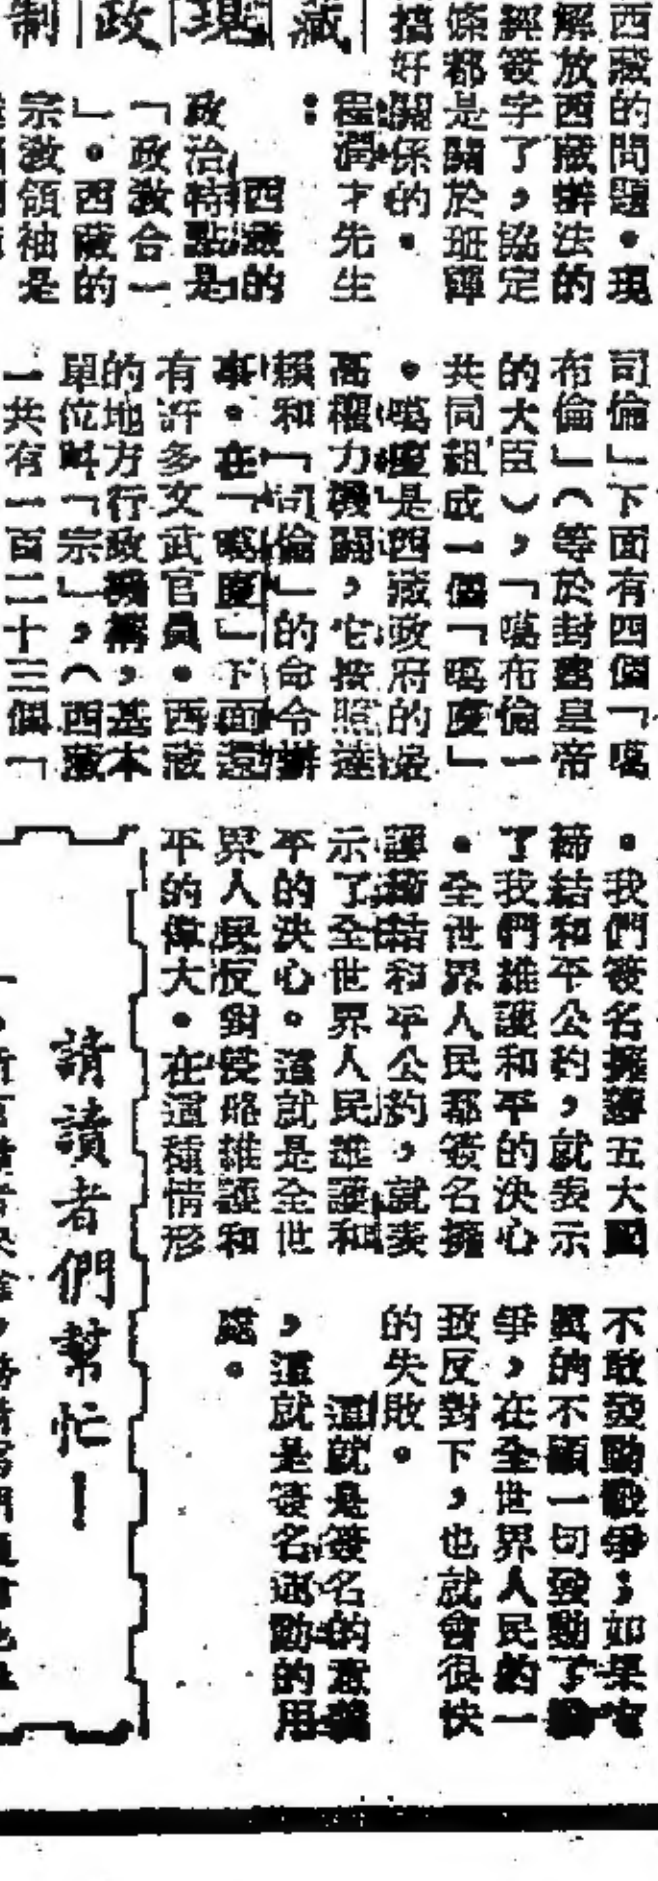 西藏的問題。現
解放西藏辦法的
經簽字了，協定
條都是關於班禪
搞好關係的。
藏現政制
程潤才先生
：
西藏的
政治特點是
「政教合一
」。西藏的
宗教領袖是
司倫」下面有四個「噶
布倫」（等於封建皇帝
的大臣），「噶布倫一
共同組成一個「噶廈」
。噶廈是西藏政府的最
高權力機關，它按照達
賴和「司倫」的命令辦
事。在「噶廈」下面還
有許多文武官員。西藏
的地方行政機構，基本
單位叫「宗」，（西藏
一共有一百二十三個「
。我們簽名擁護五大國
締結和平公約，就表示
了我們維護和平的決心
。全世界人民都簽名擁
護締結和平公約，就表
示了全世界人民維護和
平的決心。這就是全世
界人民反對侵略維護和
平的偉大。在這種情形
不敢發動戰爭；如果它
真的不顧一切發動了戰
爭，在全世界人民的一
致反對下，也就會很快
的失敗。
這就是簽名的意義
，這就是簽名運動的用
處。
請讀者們幫忙！